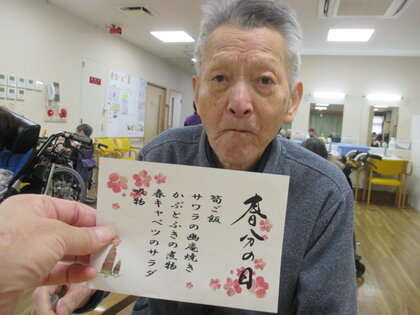 春分の日
筍ご飯
サワラの幽庵焼き
かぶとふきの煮物
春キャベツのサラダ
漬物